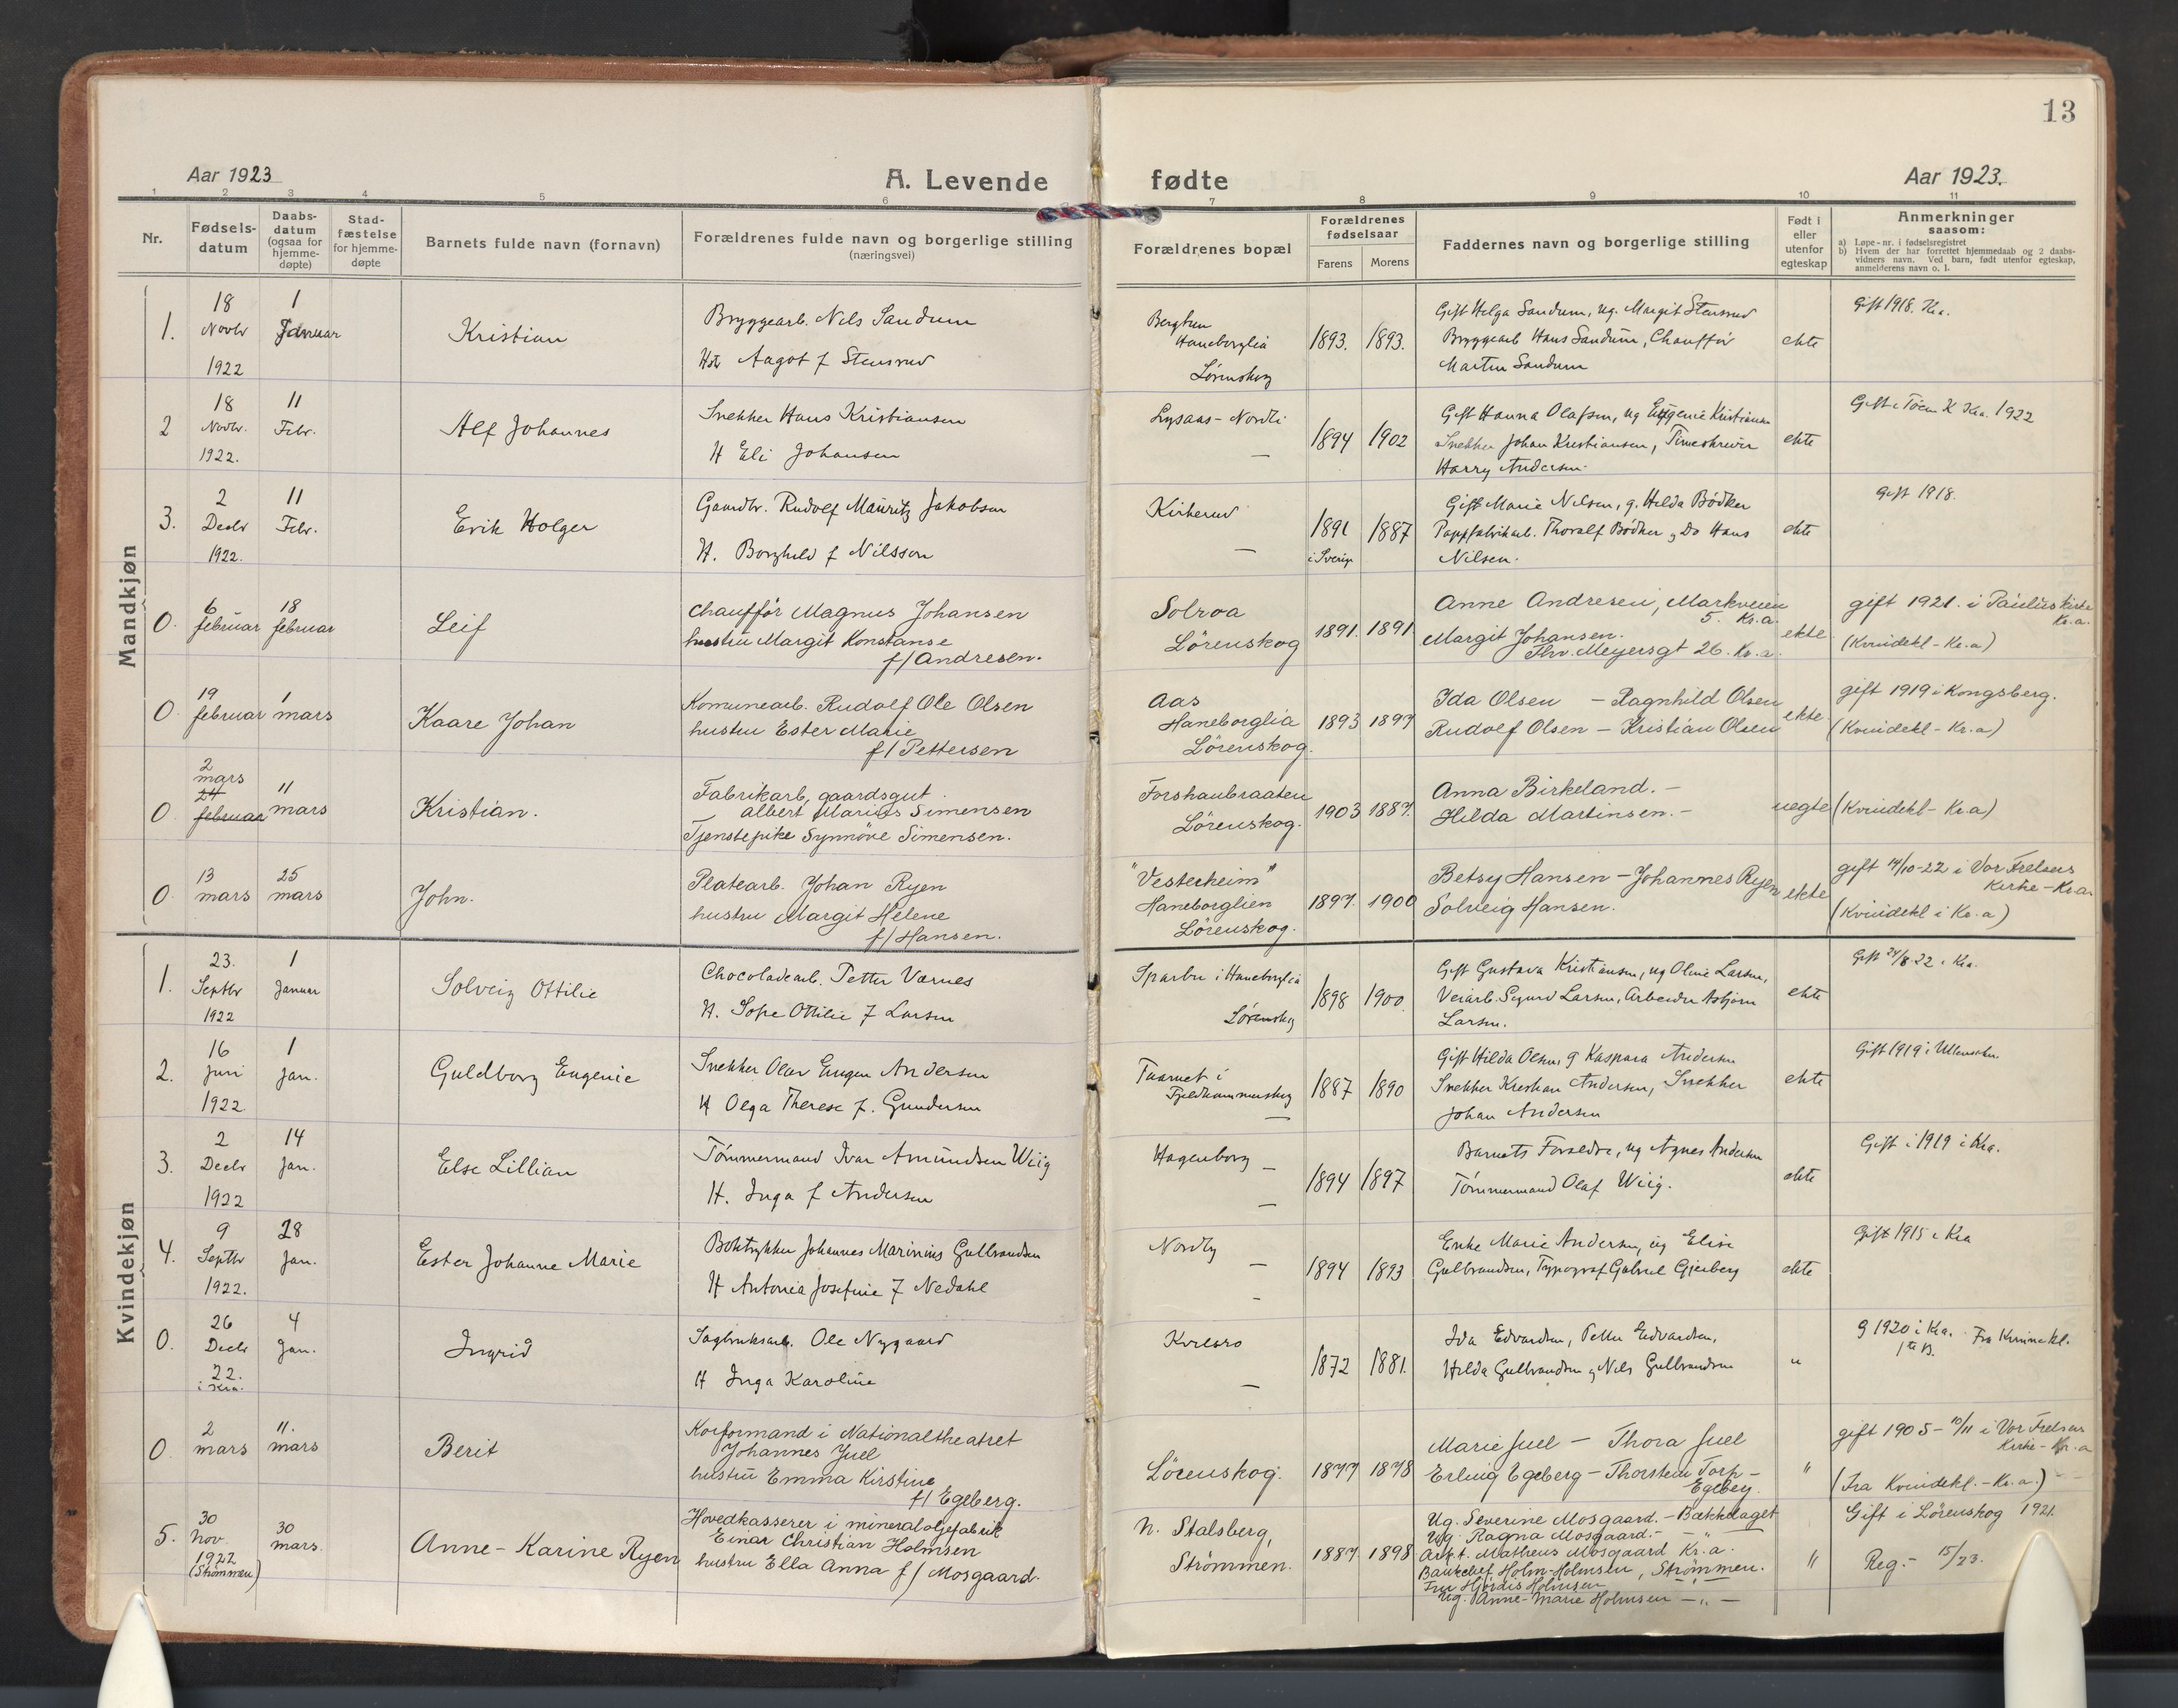 13
Aar 1923
A. Levende fødte
Aar 1923.
1 2 3 4 5 6 7 8 9 10 11
Nr.
Fødsels-
datum
Daabs-
datum
(ogsaa for
hjemme-
døpte)
Stad-
fæstelse
for hjemme-
døpte
Barnets fulde navn (fornavn)
Forældrenes fulde navn og borgerlige stilling
(næringsvei)
Forældrenes bopæl
Forældrenes
fødselsaar
Farens
Morens
Faddernes navn og borgerlige stilling
Født i
eller
utenfor
egteskap
Anmerkninger
saasom:
a) Løpe-nr. i fødselsregistret
b) Hvem der har forrettet hjemmedaab og 2 daabs-
vidners navn. Ved barn, født utenfor egteskap,
anmelderens navn o. l.
Mandkjøn
1.
18
Novbr
1922
1
Januar
Kristian
Bryggearb. Nils Sandum
Hst Aagot f Stensrud
Bergtun
Haneborglia
Lörenskog
1893. 1893.
Gift Helga Sandum, ug. Margit Stensrud
Bryggearb Hans Sandum, Chauffør
Martin Sandum
ekte
Gift 1918. Kra.
2
18
Novbr.
1922.
11
Febr.
Alf Johannes
Snekker Hans Kristiansen
H Eli Johansen
Lysaas - Nordli
—
1894 1902
Gift Hanna Olafsen, ug Eugenie Kristiansen
Snekker Johan Kristiansen, Timeskriver
Harry Andersen
ekte
Gift i Töien K Kra. 1922
3.
2
Decbr
1922.
11
Febr.
Erik Holger
Gaardbr. Rudolf Mauritz Jakobson
H. Borghild f Nilsson
Kirkerud
—
1891
i Sverige
1887
Gift Marie Nilsen, g. Hilda Bödker
Pappfabrikarb. Thoralf Bödker, Do Hans
Nilsen.
ekte
Gift 1918.
0.
6
februar
18
februar
Leif
Chauffør Magnus Johansen
hustru Margit Konstanse
f/Andresen.
Solroa
Lörenskog
1891. 1891
Anne Andresen, Markveien
5. Kr.a.
Margit Johansen.
Thv. Meyersgt 26. Kr.a.
ekte.
gift 1921. i Paulus Kirke
Kr.a.
(Kvindekl - Kr.a)
0.
19
februar
1
mars
Kaare Johan
Komunearb. Rudolf Ole Olsen
hustru Ester Marie
f/ Pettersen
Aas
Haneborglia
Lörenskog.
1893 1897
Ida Olsen — Ragnhild Olsen
Rudolf Olsen — Kristian Olsen
ekte.
gift 1919 i Kongsberg.
(Kvindekl - Kr.a)
0.
2
mars
24
februar
11
mars
Kristian.
Fabrikarb, gaardsgut
Albert Marius Simensen
Tjenstepike Synnöve Simensen.
Forshaubraaten
Lörenskog.
1903 1887.
Anna Birkeland. —
Hilda Martinsen. —
uegte
(Kvindekl - Kr.a)
0.
13
mars
25
mars
John.
Platearb. Johan Ryen
hustru Margit Helene
f/Hansen.
"Vesterheim"
Haneborglien
Lörenskog.
1897. 1900
Betsy Hansen — Johannes Ryen
Solveig Hansen.
ekte
gift 14/10-22 i Vor Frelsers
Kirke - Kr.a.
(Kvindekl i Kr.a)
Kvindekjøn
1.
23.
Septbr
1922
1
Januar
Solveig Ottilie
Chocoladearb. Petter Værnes
H. Sofie Ottilie f Larsen
Sparbu i Haneborglia
Lörenskog
1898 1900.
Gift Gustava Kristiansen, ug Oline Larsen,
Veiarb. Sigurd Larsen, Arbeider Asbjørn
Larsen.
ekte
Gift 24/8 22 i Kra.
2.
16
Juni
1922.
1
Jan.
Guldborg Eugenie
Snekker Olav Eugen Andersen
H Olga Therese f. Gundersen
Taarnet i
Fjeldhammerskog
—
1887 1890
Gift Hilda Olsen, g Kaspara Andersen
Snekker Kristian Andersen, Snekker
Johan Andersen
ekte
Gift 1919 i Ullensaker.
3.
2
Decbr
1922
14
Jan.
Else Lillian
Tömmermand Ivar Amundsen Wiig
H. Inga f Andersen
Hagenborg —
—
1894 1897
Barnets Forældre, ug Agnes Andersen
Tömmermand Olaf Wiig.
ekte
Gift i 1919 i Kra.
4.
9
Septbr
1922.
28
Jan.
Ester Johanne Marie
Boktrykker Johannes Marinius Gulbrandsen
H Antonia Josefine f Nedahl
Nordby
—
1894 1893
Enke Marie Andersen, ug Elise
Gulbrandsen, Typograf Gabriel Gjerberg
ekte
Gift 1915 i Kra
0.
26
Decbr
22.
i Kra.
4
Jan.
Ingrid
Sagbruksarb. Ole Nygaard
H Inga Karoline
Kvilsro
—
1872 1881.
Ida Edvardsen, Petter Edvardsen,
Hilda Gulbrandsen, Nils Gulbrandsen
"
g 1920 i Kra. Fra Kvinnekl.
0.
2
mars
11.
mars
Berit
Korformand i Nationaltheatret
Johannes Juel
hustru Emma Kirstine
f/ Egeberg.
Lörenskog.
1877 1878
Marie Juel — Thora Juel
Erling Egeberg — Thorstein Torp —
Egeberg.
"
gift 1905 - 10/11 i Vor Frelsers
Kirke - Kr.a
(Fra Kvindekl. - Kr.a.)
5.
30
Nov.
1922
(Strömmen)
30
mars.
Anne - Karine Ryen
Hovedkasserer i mineraloljefabrik
Einar Christian Holmsen
hustru Ella Anna f/ Mosgaard.
N. Stalsberg,
Strömmen.
1887. 1898
Ug. Severine Mosgaard. - Bækkelaget
Ug. Ragna Mosgaard. - — " —
Arkt. Matheus Mosgaard Kr.a.
Bankchef Holm-Holmsen, Strömmen.
Fru Hjördis Holmsen
Ug. Anne-Marie Holmsen — " —
"
Gift i Lörenskog 1921.
Reg. - 15/23.